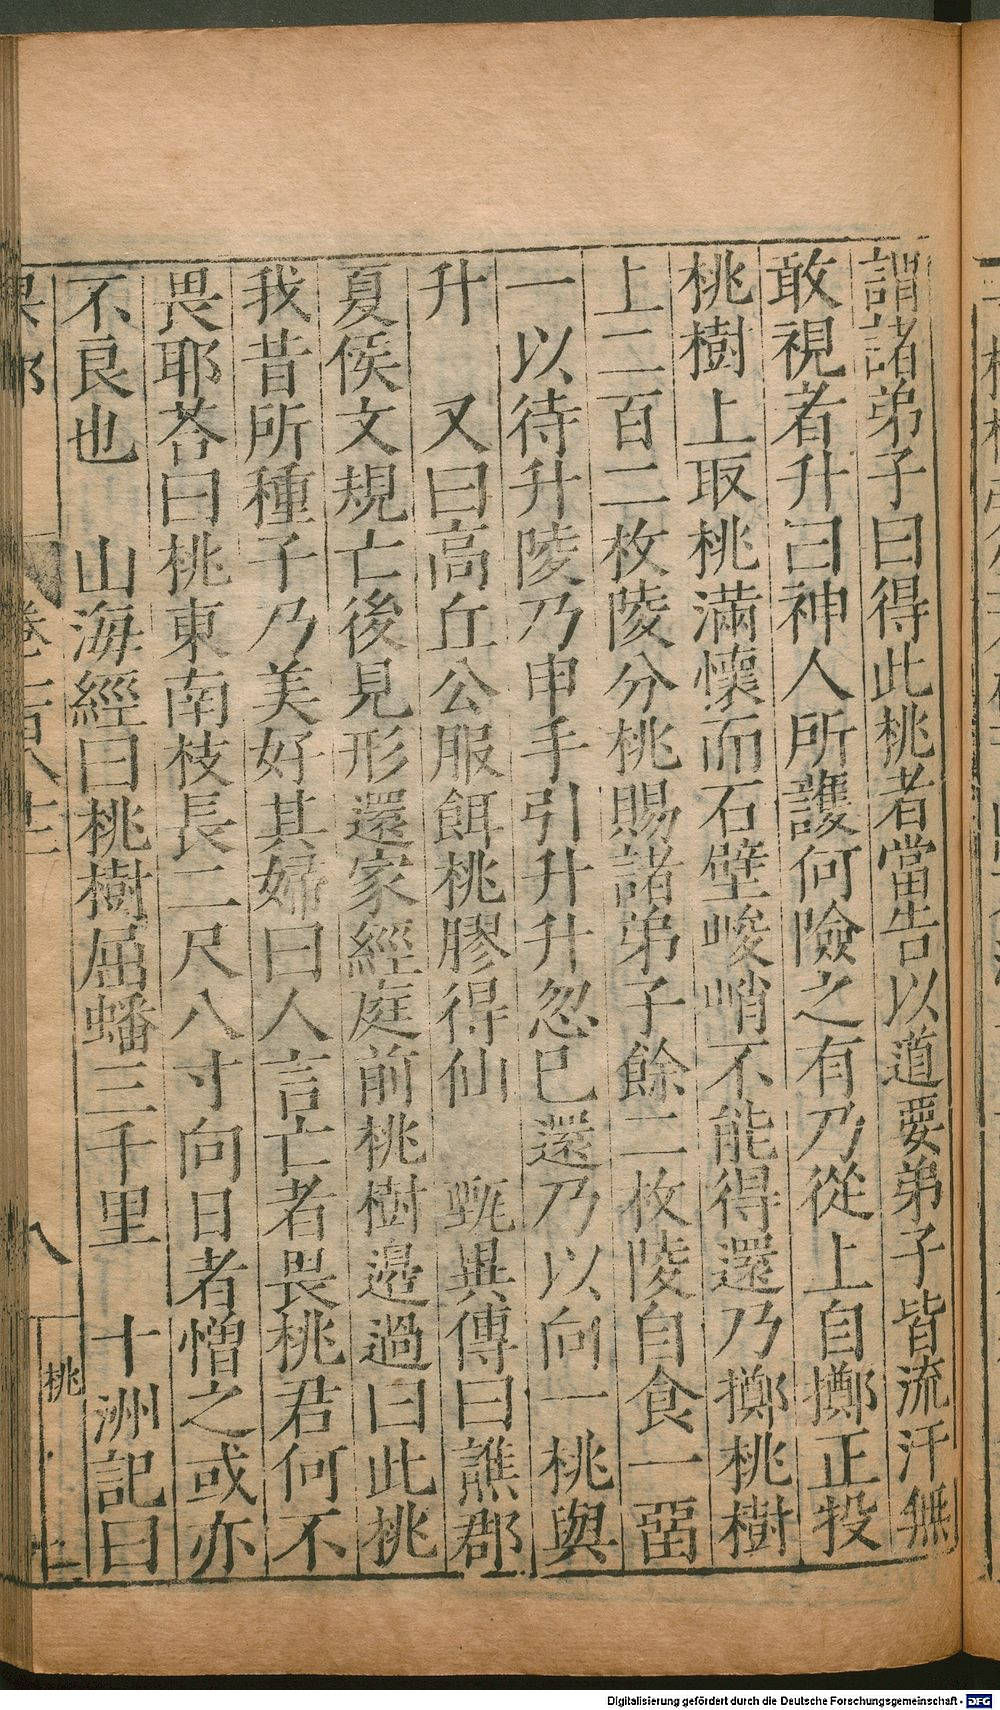 謂諸弟子曰得此桃者當告以道要弟子皆流汗無
敢視者升曰神人所護何險之有乃從上自擲正投
桃樹上取桃滿懷而石壁峻峭不能得還乃擲桃樹
上二百二枚陵分桃賜諸弟子餘二枚陵自食一留
一以待升陵乃申手引升升忽已還乃以向一桃與
升 又曰高丘公服餌桃膠得仙 甄異傳曰譙郡
夏侯文規亡後見形還家經庭前桃樹邊過曰此桃
我昔所種子乃美好其婦曰人言亡者畏桃君何不
畏耶荅曰桃東南枝長二尺八寸向日者憎之或亦
不良也 山海經曰桃樹屈蟠三千里 十洲記曰
果部
八
桃
Digitalisierung gefördert durch die Deutsche Forschungsgemeinschaft - DFG